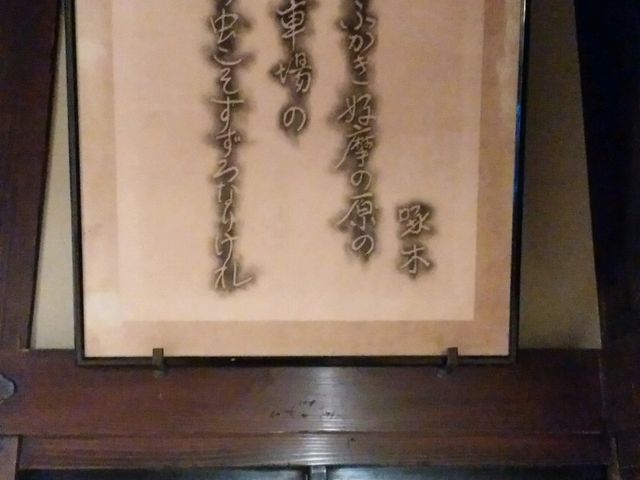 啄木
ふかき好摩の原の
車場の
虫こそすずろなりけれ